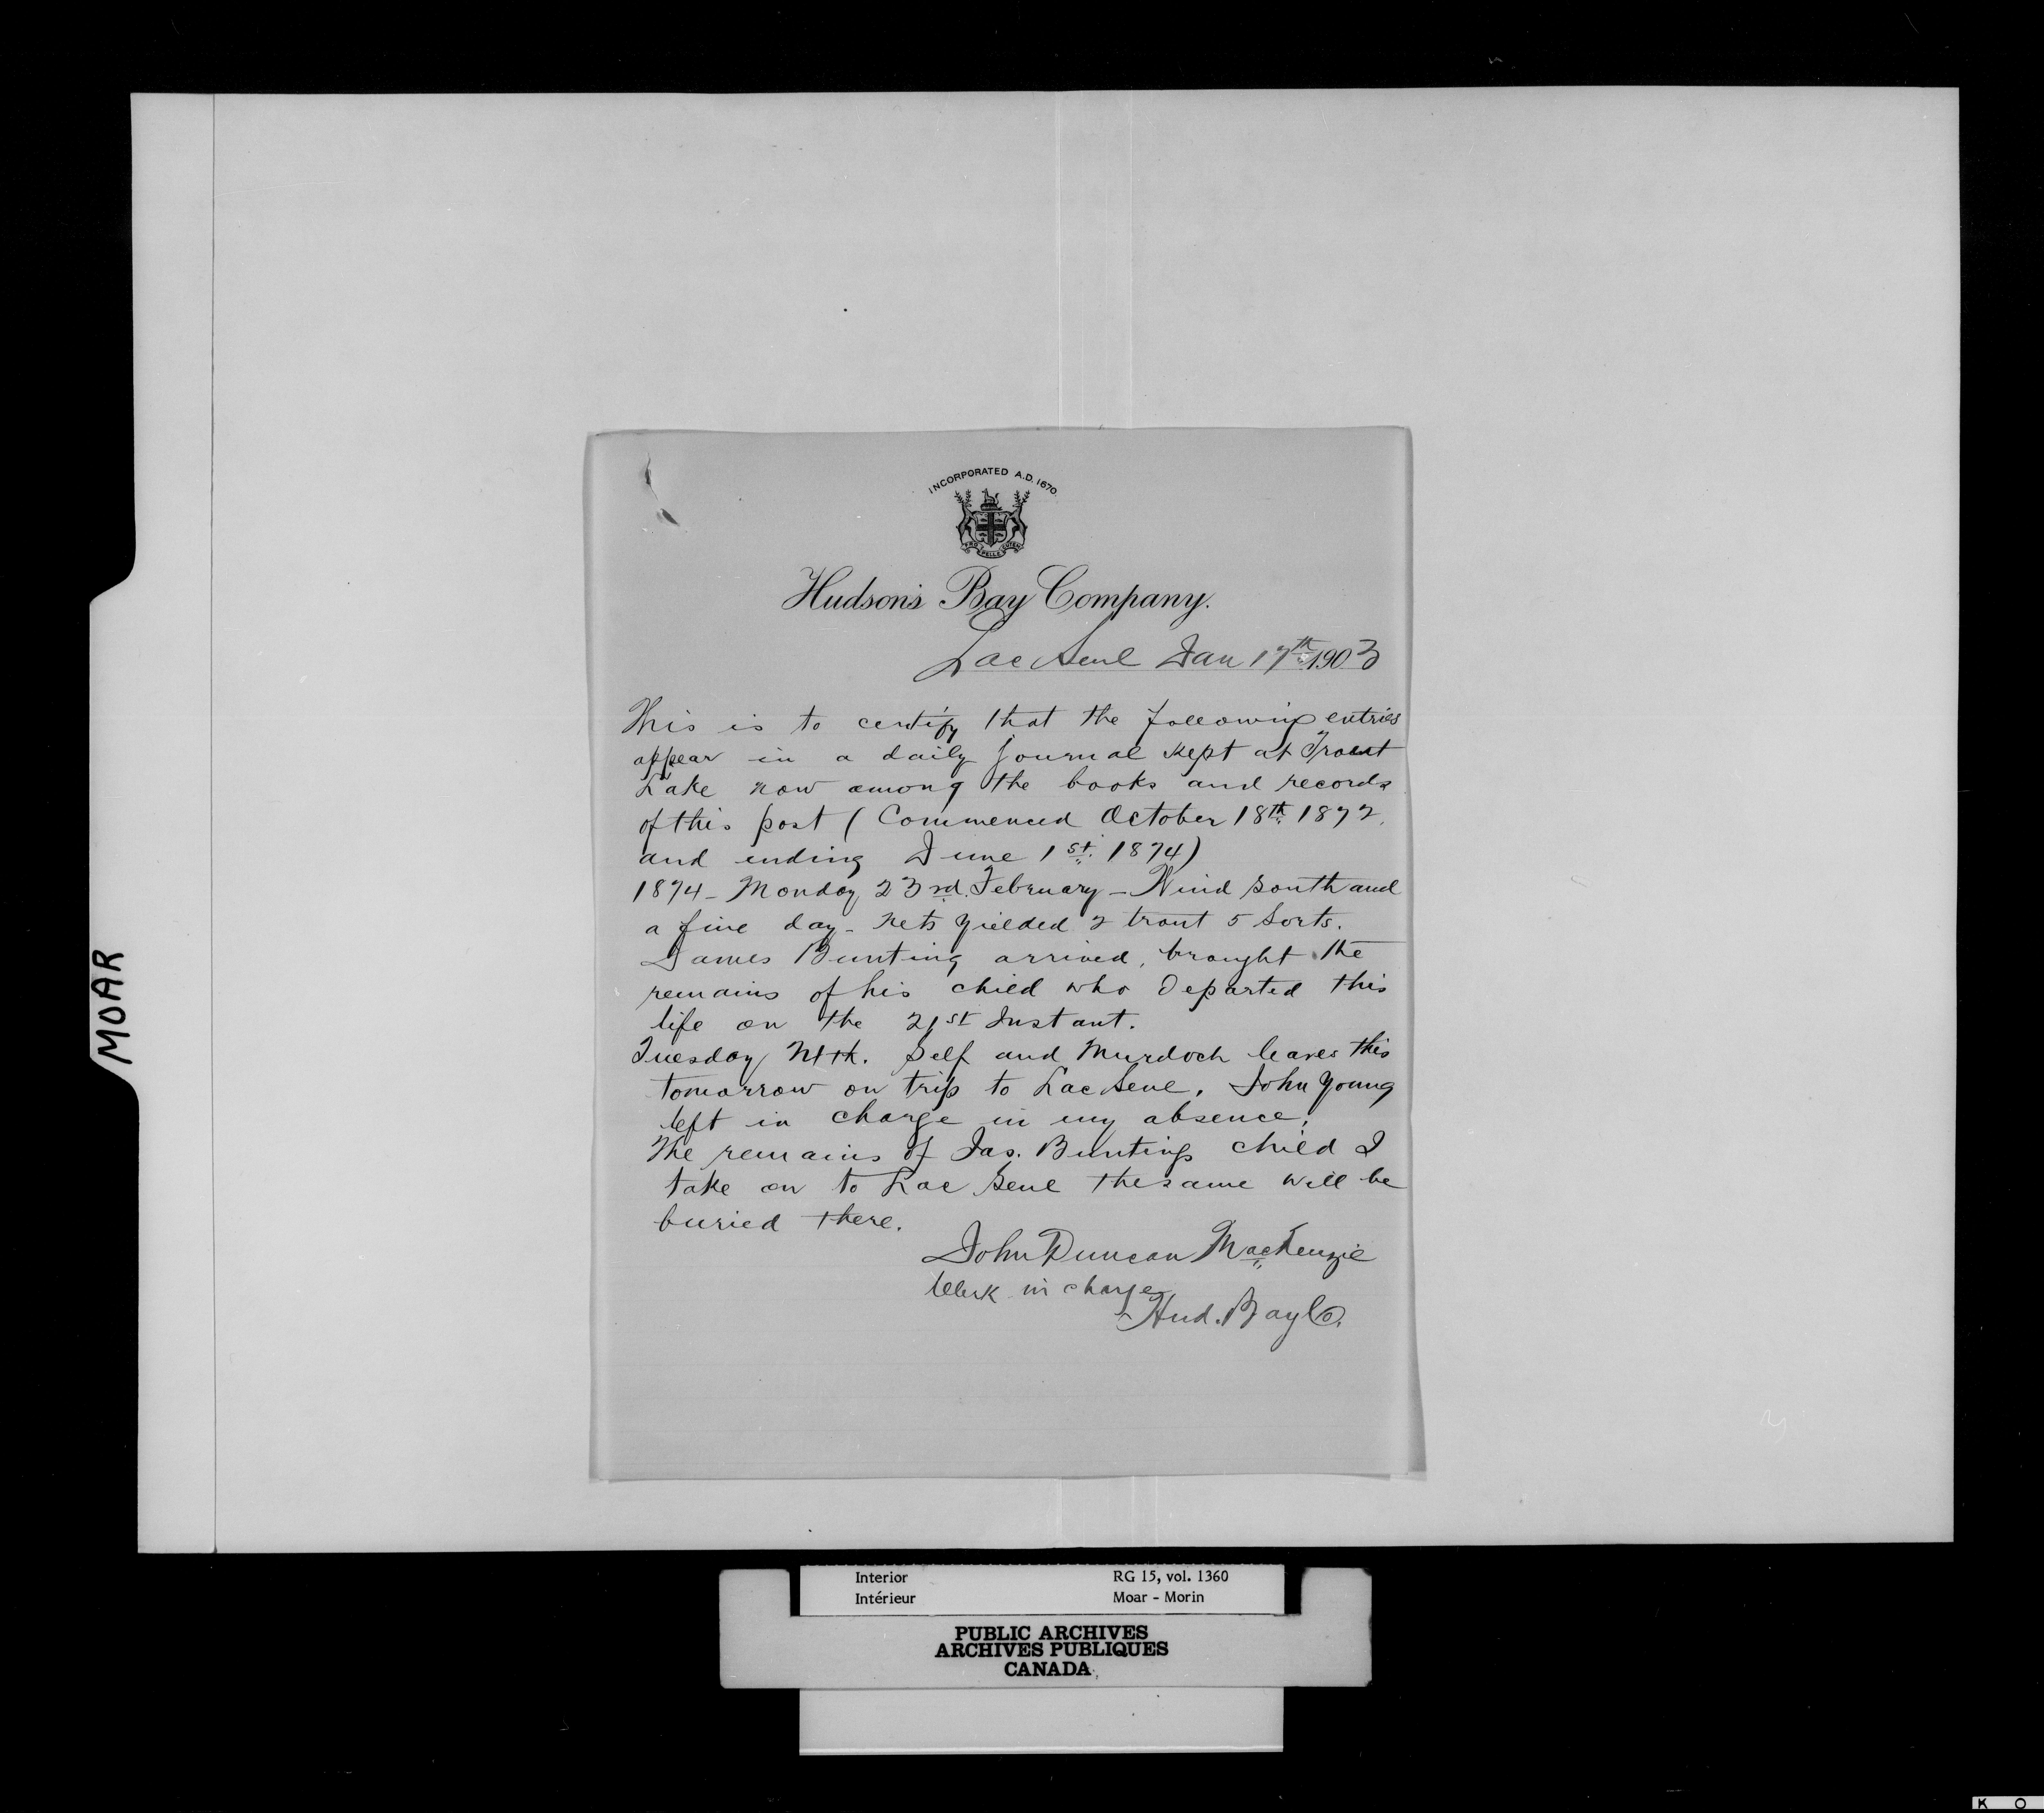 INCORPORATED A.D. 1670.
PRO PELLE CUTEM
Hudson's Bay Company.
Lac Seul Jan 17th 1903
This is to certify that the following entries
appear in a daily journal kept at Trout
Lake now among the books and records
of this post (Commenced October 18th 1872,
and ending June 1st. 1874)
1874 - Monday 23rd. February - Wind South and
a fine day - Nets yielded 2 trout 5 Sorts.
James Bunting arrived, brought the
remains of his child who departed this
life on the 21st Instant.
Tuesday 24th. Self and Murdoch leaves this
tomorrow on trip to Lac Seul, John Young
left in charge in my absence.
The remains of Jas. Buntings child I
take on to Lac Seul the same will be
buried there.
John Duncan MacKenzie
Clerk in charge
Hud. Bay Co.
MOAR
Interior RG 15, vol. 1360
Intérieur Moar - Morin
PUBLIC ARCHIVES
ARCHIVES PUBLIQUES
CANADA
K O